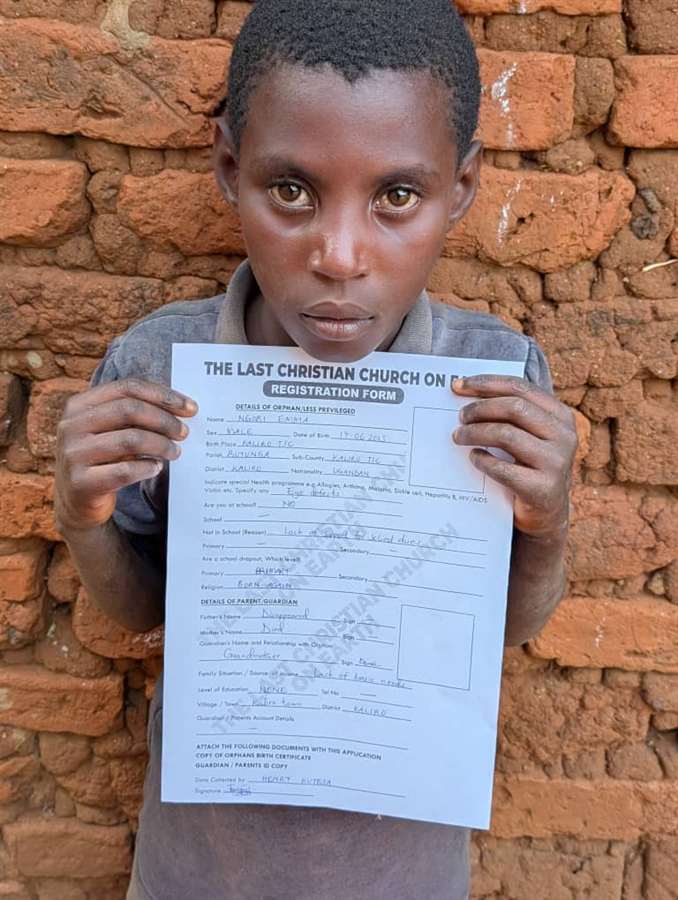 THE LAST CHRISTIAN CHURCH ON EA
REGISTRATION FORM
DETAILS OF ORPHAN/LESS PREVILEGED
Name NGOBI EMMA
Sex MALE Date of Birth 17-06-2013
Birth Place KALIRO T/C
Parish BUTUNGA Sub-County KALIRO T/C
District KALIRO Nationality UGANDAN
Indicate special Health programme e.g Allagies, Asthma, Malaria, Sickle cell, Hepatitis B, HIV/AIDS
Victim etc. Specify Eye defects
Are you at school? NO
School
Not in School (Reason) Lack of school dues
Primary Secondary
Are a school dropout, Which level?
Primary PRIMARY Secondary
Religion BORN AGAIN
DETAILS OF PARENT/GUARDIAN
Father's Name Disappeared Sign
Mother's Name Died Sign
Guardian's Name and Relationship with Orphan
Grandmother Sign
Family Situation / Source of Income Lack of basic needs
Level of Education NONE Tel No
Village / Town Kaliro town District KALIRO
Guardian / Parents Account Details
ATTACH THE FOLLOWING DOCUMENTS WITH THIS APPLICATION
COPY OF ORPHANS BIRTH CERTIFICATE
GUARDIAN / PARENTS ID COPY
Data Collected by HENRY
Signature
THE LAST CHRISTIAN CHURCH
ON EARTH
THE LAST CHRISTIAN CHURCH
ON EARTH